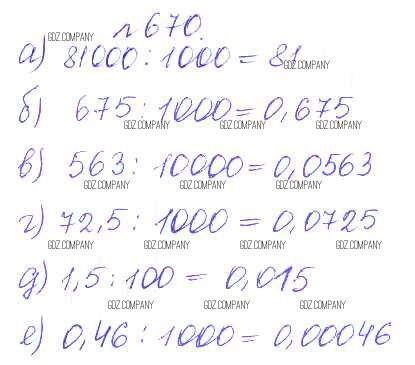 № 670.
GDZ.COMPANY
а) 81000 : 1000 = 81
GDZ.COMPANY
б) 675 : 1000 = 0,675
GDZ.COMPANY GDZ.COMPANY GDZ.COMPANY
в) 563 : 10000 = 0,0563
GDZ.COMPANY GDZ.COMPANY GDZ.COMPANY
г) 72,5 : 1000 = 0,0725
GDZ.COMPANY GDZ.COMPANY GDZ.COMPANY GDZ.COMPANY
д) 1,5 : 100 = 0,015
GDZ.COMPANY GDZ.COMPANY GDZ.COMPANY
е) 0,46 : 1000 = 0,00046